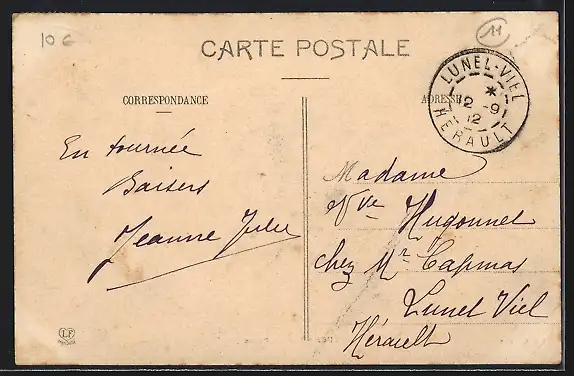 10 €
11
CARTE POSTALE
CORRESPONDANCE
ADRESSE
LUNEL-VIEL
*
12 -9
12
HERAULT
En tournée
Baisers
Jeanne Jules
Madame
Vve Hugonnel
chez Mr Capmas
Lunel Viel
Hérault
LF